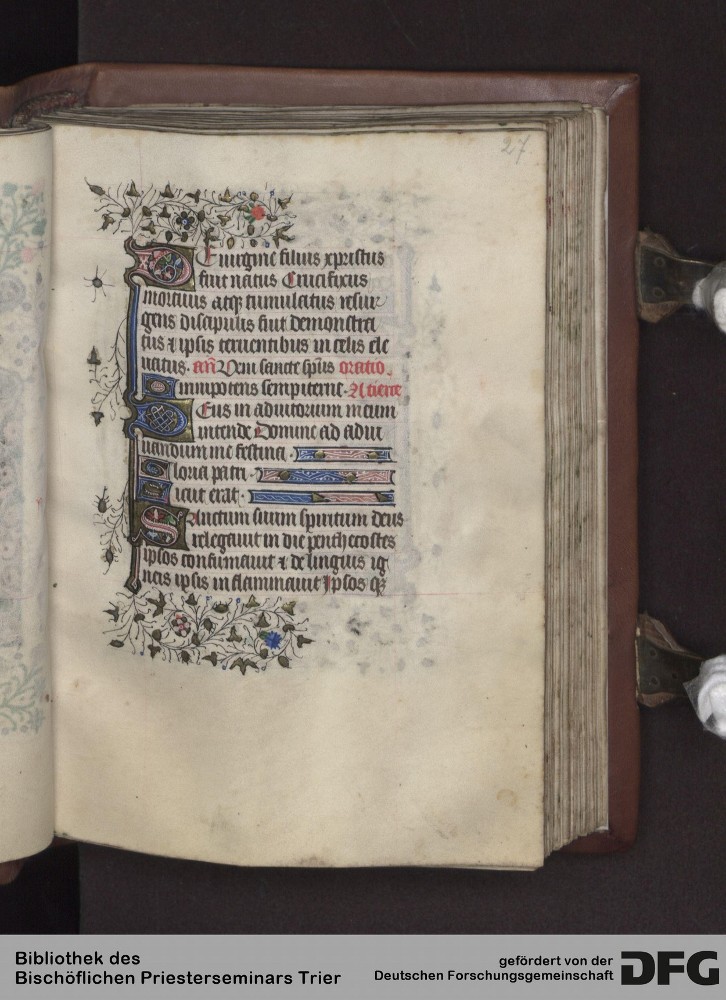 27.
De uirgine filius xpristus
fuit natus Crucifixus
mortuus atqꝫ tumulatus resur
gens discipulis fuit demonstra
tus ⁊ ipsis cernentibus in celis ele
uatus. an̄ Veni sancte sp̄us oratio.
Omnipotens sempiterne. A tierce
Deus in adiutorium meum
intende Domine ad adiu
uandum me festina.
Gloria patri.
Sicut erat.
Sanctum suum spiritum deus
relegauit in die penthecostes
ipsos confirmauit ⁊ de linguis ig
neis ipsis inflammauit Ipsos qꝫ
Bibliothek des
Bischöflichen Priesterseminars Trier
gefördert von der
Deutschen Forschungsgemeinschaft
DFG